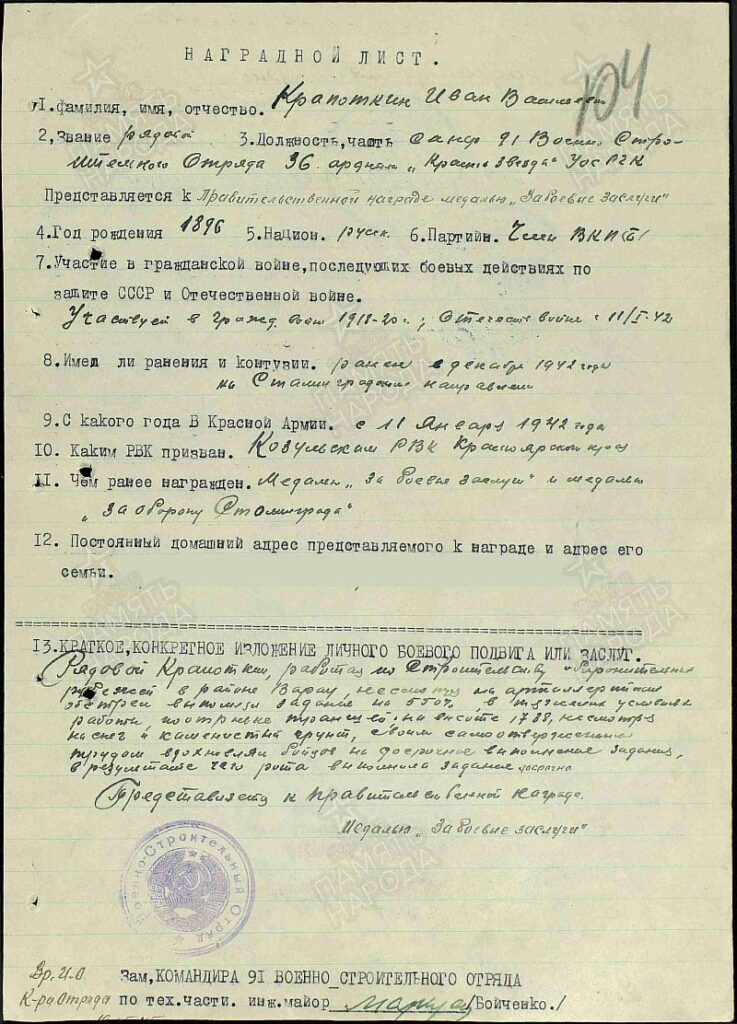 НАГРАДНОЙ ЛИСТ.
104
1.фамилия, имя, отчество. Крапоткин Иван
2,Звание рядовой 3.Должность,часть сапер 91 Военно Стро-
ительного Отряда 36. "Красн. Звезда" УОС РГК
Представляется к Правительственной награде медалью „За боевые заслуги"
4.Год рождения 1896 5.Национ. русск. 6.Партийн. Член ВКП(б)
7.Участие в гражданской войне,последующих боевых действиях по
защите СССР и Отечественной войне.
Участвует в гражд. 1918-20г.; с 11/I-42
8.Имел ли ранения и контузии. ранен в декабре 1942 года
на Сталинградском направлении
9.С какого года В Красной Армии. с 11 Января 1942 года
10. Каким РВК призван. Козульским РВК Красноярского края
11. Чем ранее награжден. Медалью „За боевые заслуги" и медалью
„За оборону Сталинграда"
12. Постоянный домашний адрес представляемого к награде и адрес его
семьи.
13.КРАТКОЕ,КОНКРЕТНОЕ ИЗЛОЖЕНИЕ ЛИЧНОГО БОЕВОГО ПОДВИГА ИЛИ ЗАСЛУГ.
Рядовой Крапоткин, работая по Строительству оборонительных
рубежей в районе не смотря на артиллерийский
обстрел выполнял задание на 550%, в тяжелых условиях
работы, по отрывке траншей, на высоте 1788, несмотря
на снег и каменистый грунт, своим самоотверженным
трудом вдохновлял бойцов на досрочное выполнение задания,
в результате чего рота выполнила задание досрочно
Представляется к правительственной награде.
Медалью „За боевые заслуги"
Военно-Строительный Отряд
Вр.И.О
К-ра Отряда
Зам,КОМАНДИРА 91 ВОЕННО_СТРОИТЕЛЬНОГО ОТРЯДА
по тех.части. инж.майор /Бойченко./
ПАМЯТЬ НАРОДА